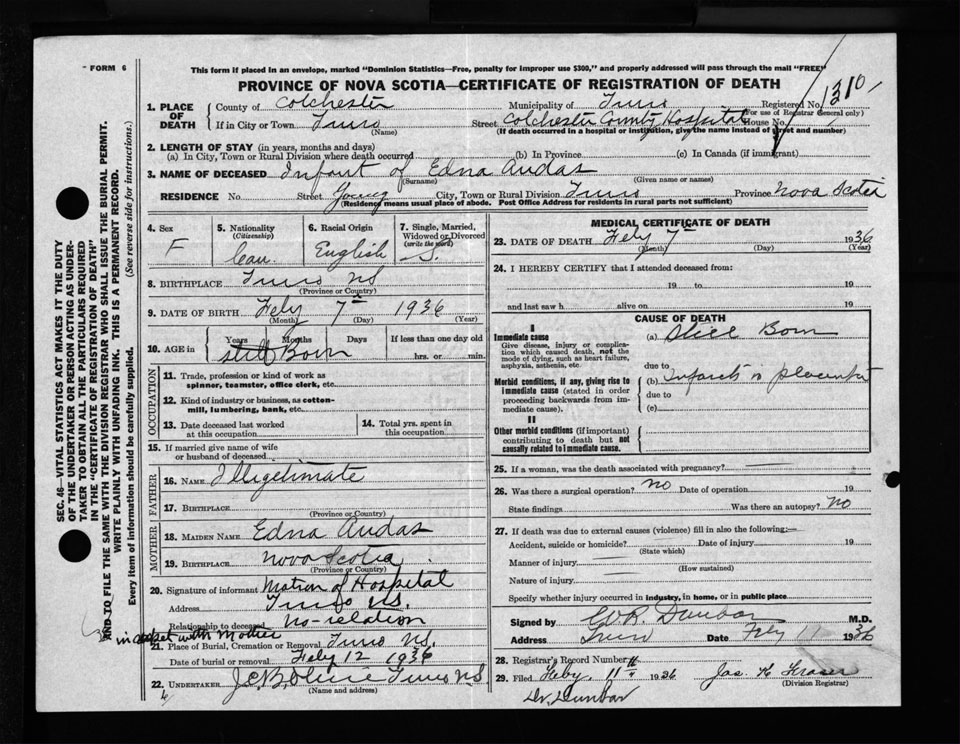 FORM 6
This form if placed in an envelope, marked "Dominion Statistics—Free, penalty for improper use $300," and properly addressed will pass through the mail "FREE"
PROVINCE OF NOVA SCOTIA—CERTIFICATE OF REGISTRATION OF DEATH
1310
1. PLACE OF DEATH
County of Colchester Municipality of Truro Registered No.
(For use of Registrar General only)
If in City or Town Truro Street Colchester County Hospital House No.
(Name) (If death occurred in a hospital or institution, give the name instead of street and number)
2. LENGTH OF STAY (in years, months and days)
(a) In City, Town or Rural Division where death occurred (b) In Province (c) In Canada (if immigrant)
3. NAME OF DECEASED Infant of Edna Audas
(Surname) (Given name or names)
RESIDENCE No. Street Young City, Town or Rural Division Truro Province Nova Scotia
(Residence means usual place of abode. Post Office Address for residents in rural parts not sufficient)
4. Sex F
5. Nationality (Citizenship) Can.
6. Racial Origin English
7. Single, Married, Widowed or Divorced (write the word) S.
8. BIRTHPLACE Truro NS
(Province or Country)
9. DATE OF BIRTH Feby 7th 1936
(Month) (Day) (Year)
10. AGE in Years Months Days If less than one day old
still Born hrs. or min.
OCCUPATION
11. Trade, profession or kind of work as spinner, teamster, office clerk, etc.
12. Kind of industry or business, as cotton-mill, lumbering, bank, etc.
13. Date deceased last worked at this occupation
14. Total yrs. spent in this occupation
15. If married give name of wife or husband of deceased
FATHER
16. NAME Illigetimate
17. BIRTHPLACE
(Province or Country)
MOTHER
18. MAIDEN NAME Edna Audas
19. BIRTHPLACE Nova Scotia
(Province or Country)
20. Signature of informant Matron of Hospital
Address Truro NS.
Relationship to deceased no-relation
in casket with Mother
21. Place of Burial, Cremation or Removal Truro NS.
Date of burial or removal Feby 12 1936
22. UNDERTAKER Truro NS
(Name and address)
MEDICAL CERTIFICATE OF DEATH
23. DATE OF DEATH Feby 7th 1936
(Month) (Day) (Year)
24. I HEREBY CERTIFY that I attended deceased from:
19 to 19
and last saw h alive on 19
CAUSE OF DEATH
I
Immediate cause
Give disease, injury or complication which caused death, not the mode of dying, such as heart failure, asphyxia, asthenia, etc.
(a) Still Born
due to
Morbid conditions, if any, giving rise to immediate cause (stated in order proceeding backwards from immediate cause).
(b) Infarcts in placenta
due to
(c)
II
Other morbid conditions (if important) contributing to death but not causally related to immediate cause.
25. If a woman, was the death associated with pregnancy?
26. Was there a surgical operation? no Date of operation 19
State findings Was there an autopsy? no
27. If death was due to external causes (violence) fill in also the following:—
Accident, suicide or homicide? Date of injury 19
(State which)
Manner of injury
(How sustained)
Nature of injury
Specify whether injury occurred in industry, in home, or in public place
Signed by Dunbar M.D.
Address Truro Date Feby 11 1936
28. Registrar's Record Number
29. Filed Feby. 11th 1936 Jas. H. Fraser
(Division Registrar)
Dr. Dunbar
SEC. 46—VITAL STATISTICS ACT MAKES IT THE DUTY
OF THE UNDERTAKER OR PERSON ACTING AS UNDER-
TAKER TO OBTAIN ALL THE PARTICULARS REQUIRED
IN THE "CERTIFICATE OF REGISTRATION OF DEATH"
AND TO FILE THE SAME WITH THE DIVISION REGISTRAR WHO SHALL ISSUE THE BURIAL PERMIT.
WRITE PLAINLY WITH UNFADING INK. THIS IS A PERMANENT RECORD.
Every item of information should be carefully supplied. (See reverse side for instructions.)